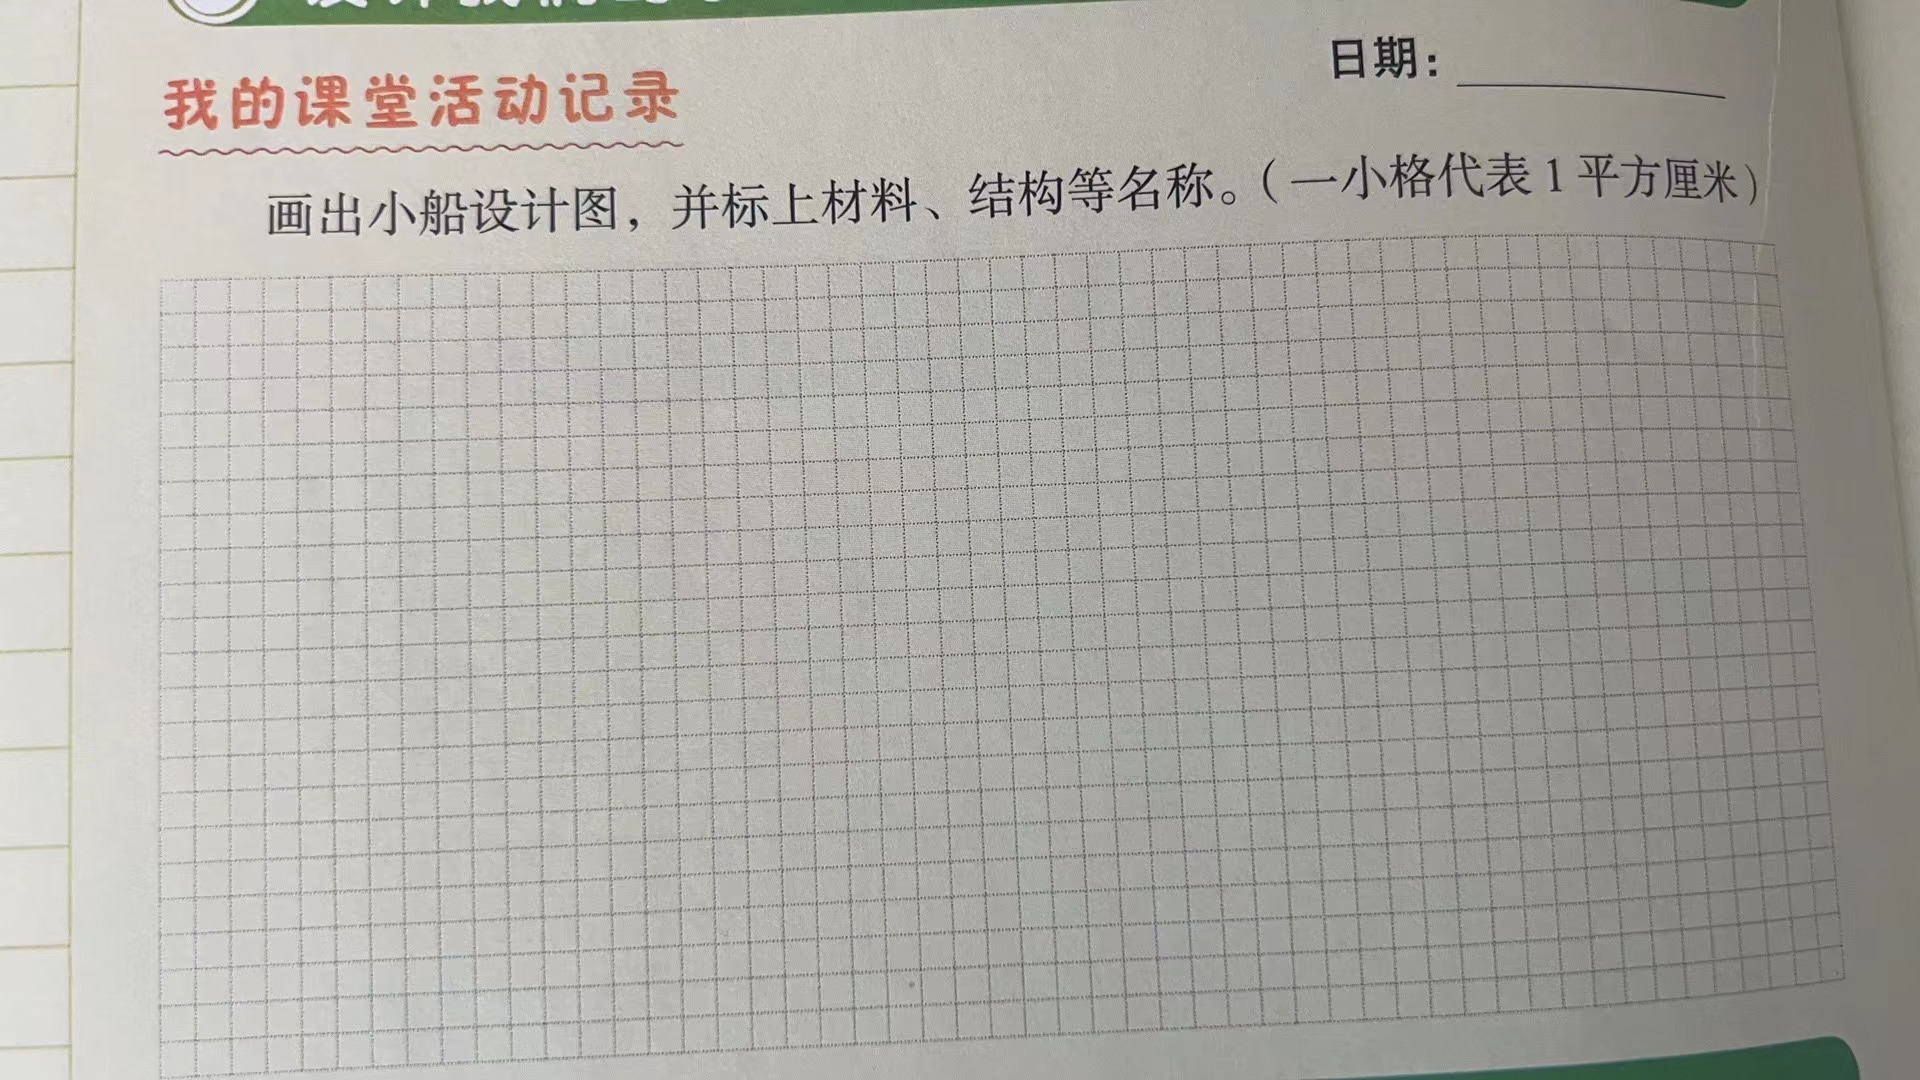 日期：
我的课堂活动记录
画出小船设计图，并标上材料、结构等名称。（一小格代表1平方厘米）